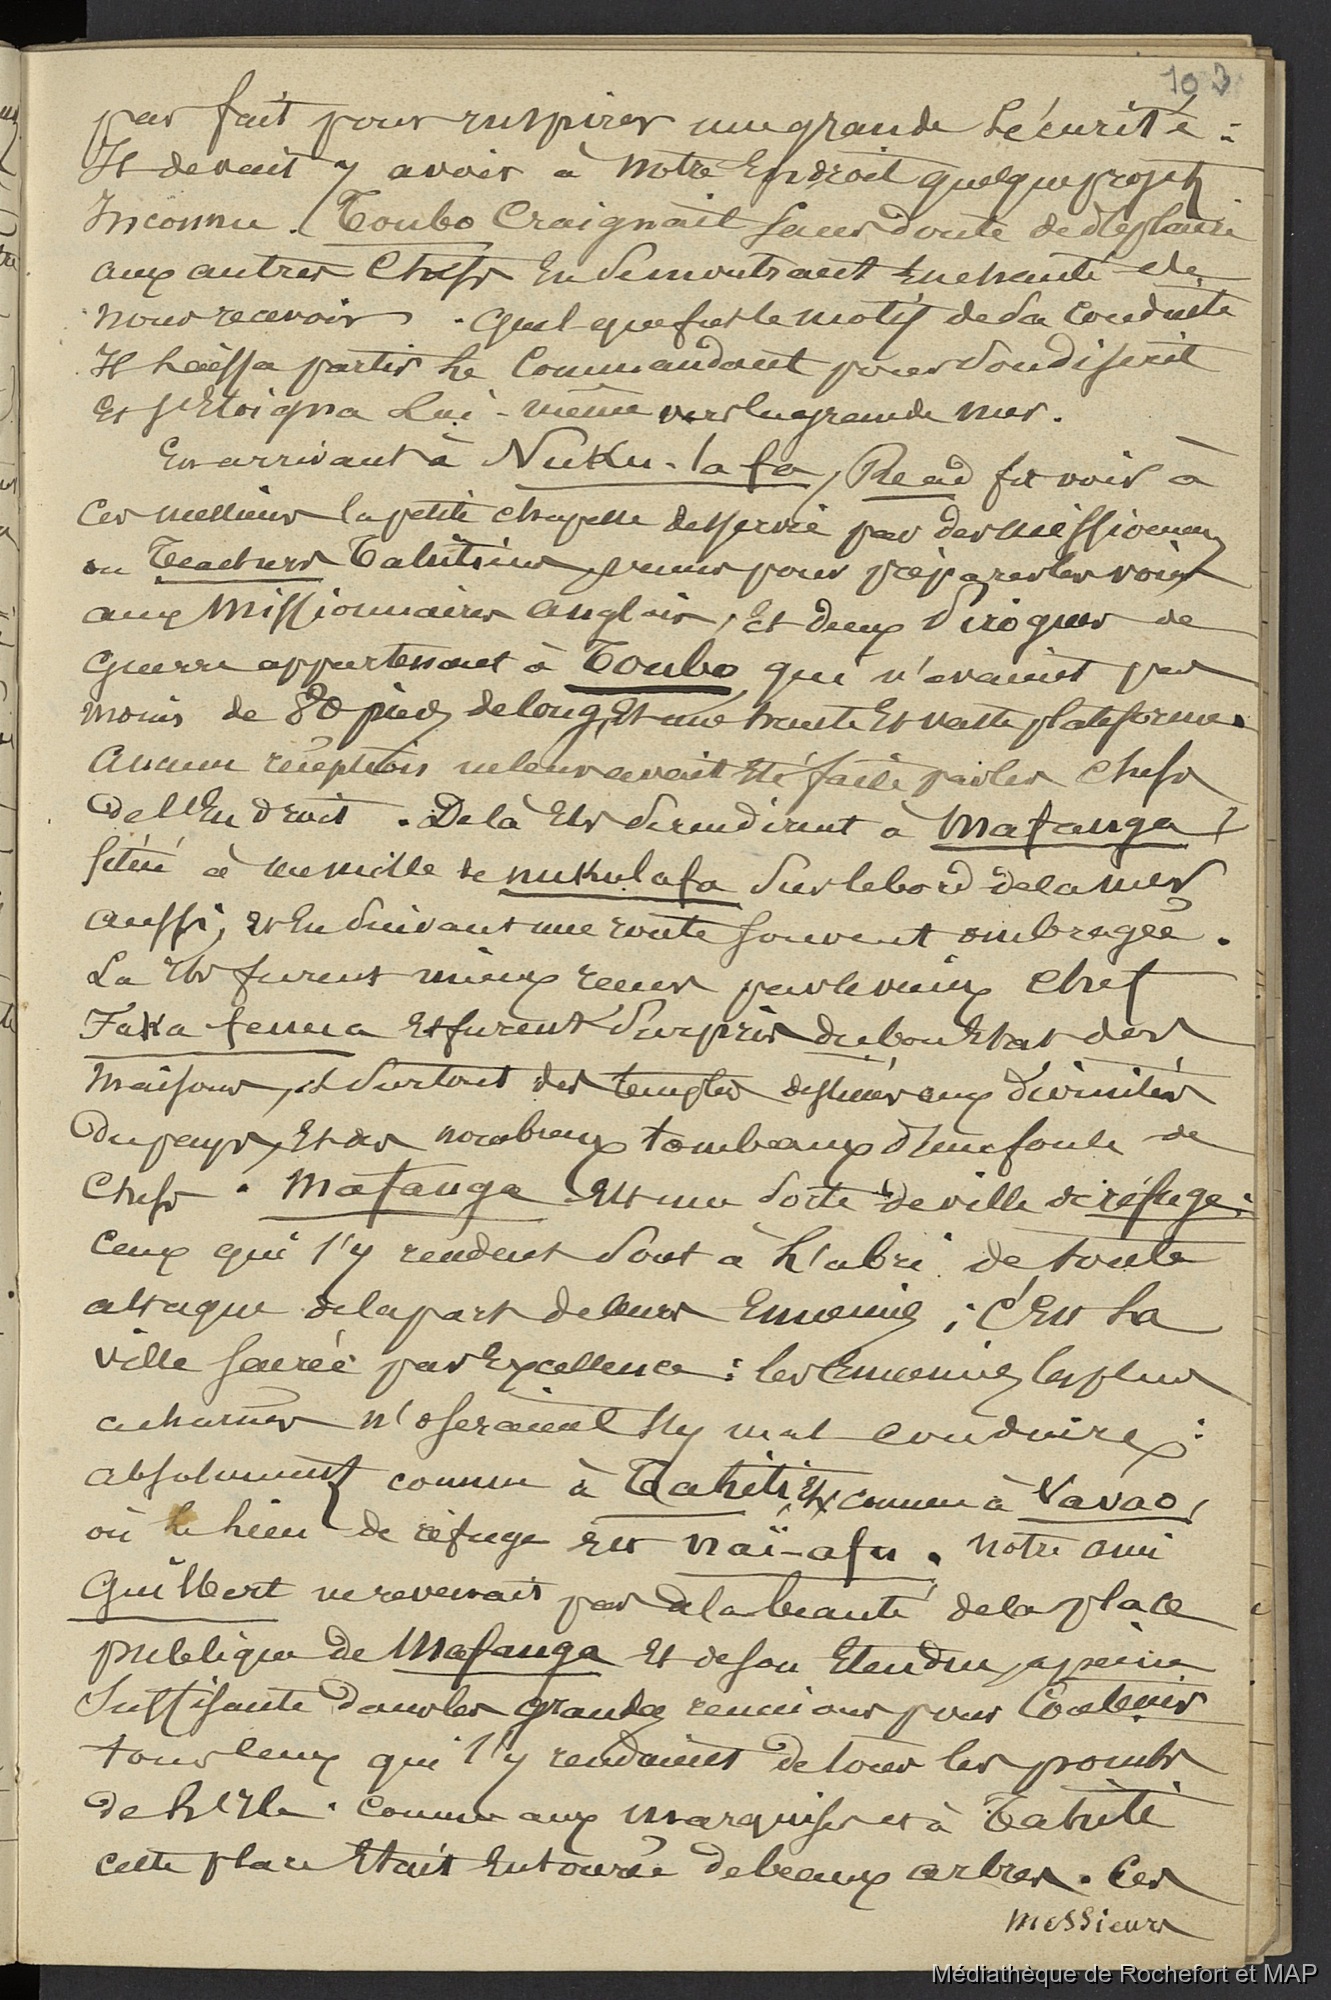 103
pas fait pour inspirer une grande sécurité :
Il devait y avoir à notre Endroit quelque projet
Inconnu. Toubo Craignait sans doute de déplaire
aux autres Chefs En demontrant Enchanté de
nous recevoir. quel que fut le motif de sa Conduite
Il laissa partir Le Commandant pour son district
Et s'Eloigna Lui-même vers la grande mer.
En arrivant à Nuku-lafa, Read fit voir à
Ces messieurs la petite chapelle desservie par des missionnaires
ou Teachers Tahitiens, venus pour préparer les voies
aux Missionnaires anglais, Et deux Pirogues de
guerre appartenant à Toubo qui n'avaient pas
moins de 80 pieds de long, Et une haute Et vaste plateforme.
Aucune réception ne leur avait Eté faite par les Chefs
de l'Endroit. De là Ils se rendirent à Mafanga,
situé à un mille de nukulafa sur le bord de la mer
aussi, Et En suivant une route souvent ombragée.
La Ils furent mieux recus par le vieux Chef
Faka-fenua Et furent surpris du bon Etat des
maisons, et surtout des temples destinés aux divinités
du pays, Et des nombreux tombeaux d'une foule de
Chefs. Mafanga Est une sorte de ville de réfuge :
Ceux qui s'y rendent sont à L'abri de toute
attaque de la part de leurs Ennemis ; C'Est La
ville sacrée par Excellence : les Ennemis les plus
acharnés n'oseraient s'y mal conduire :
absolument comme à Tahiti, Et comme à Vavao,
où le Lieu de réfuge Est vaï-afu. Notre ami
Guilbert ne revenait pas de la beauté de la place
publique de Mafanga Et de son Etendue, a peine
suffisante dans les grandes reunions pour Contenir
tous ceux qui s'y rendaient de tous les points
de L'Ile. Comme aux marquises et à Tahiti
cette place Etait Entourée de beaux arbres. Ces
messieurs
Médiathèque de Rochefort et MAP